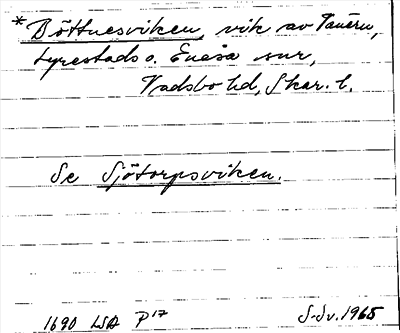 * Böttnesviken, vik av Vänern,
Lyrestads o. Enåsa snr,
Vadsbo hd, Skar. l.
Se Sjötorpsviken.
1690 LSA P17 S-Sv. 1965